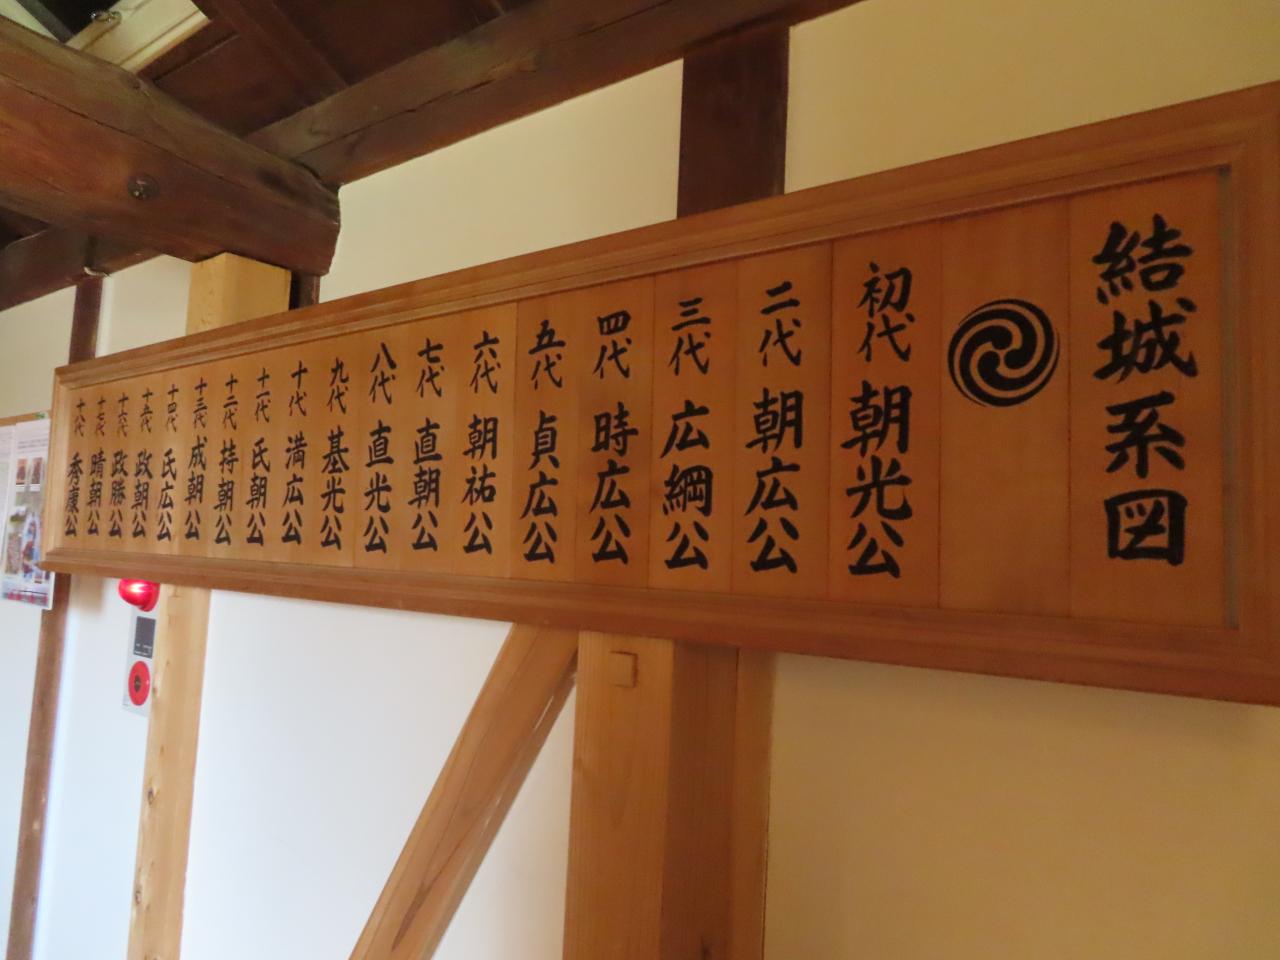 結城系図
初代 朝光公
二代 朝広公
三代 広綱公
四代 時広公
五代 貞広公
六代 朝祐公
七代 直朝公
八代 直光公
九代 基光公
十代 満広公
十一代 氏朝公
十二代 持朝公
十三代 成朝公
十四代 氏広公
十五代 政朝公
十六代 政勝公
十七代 晴朝公
十八代 秀康公